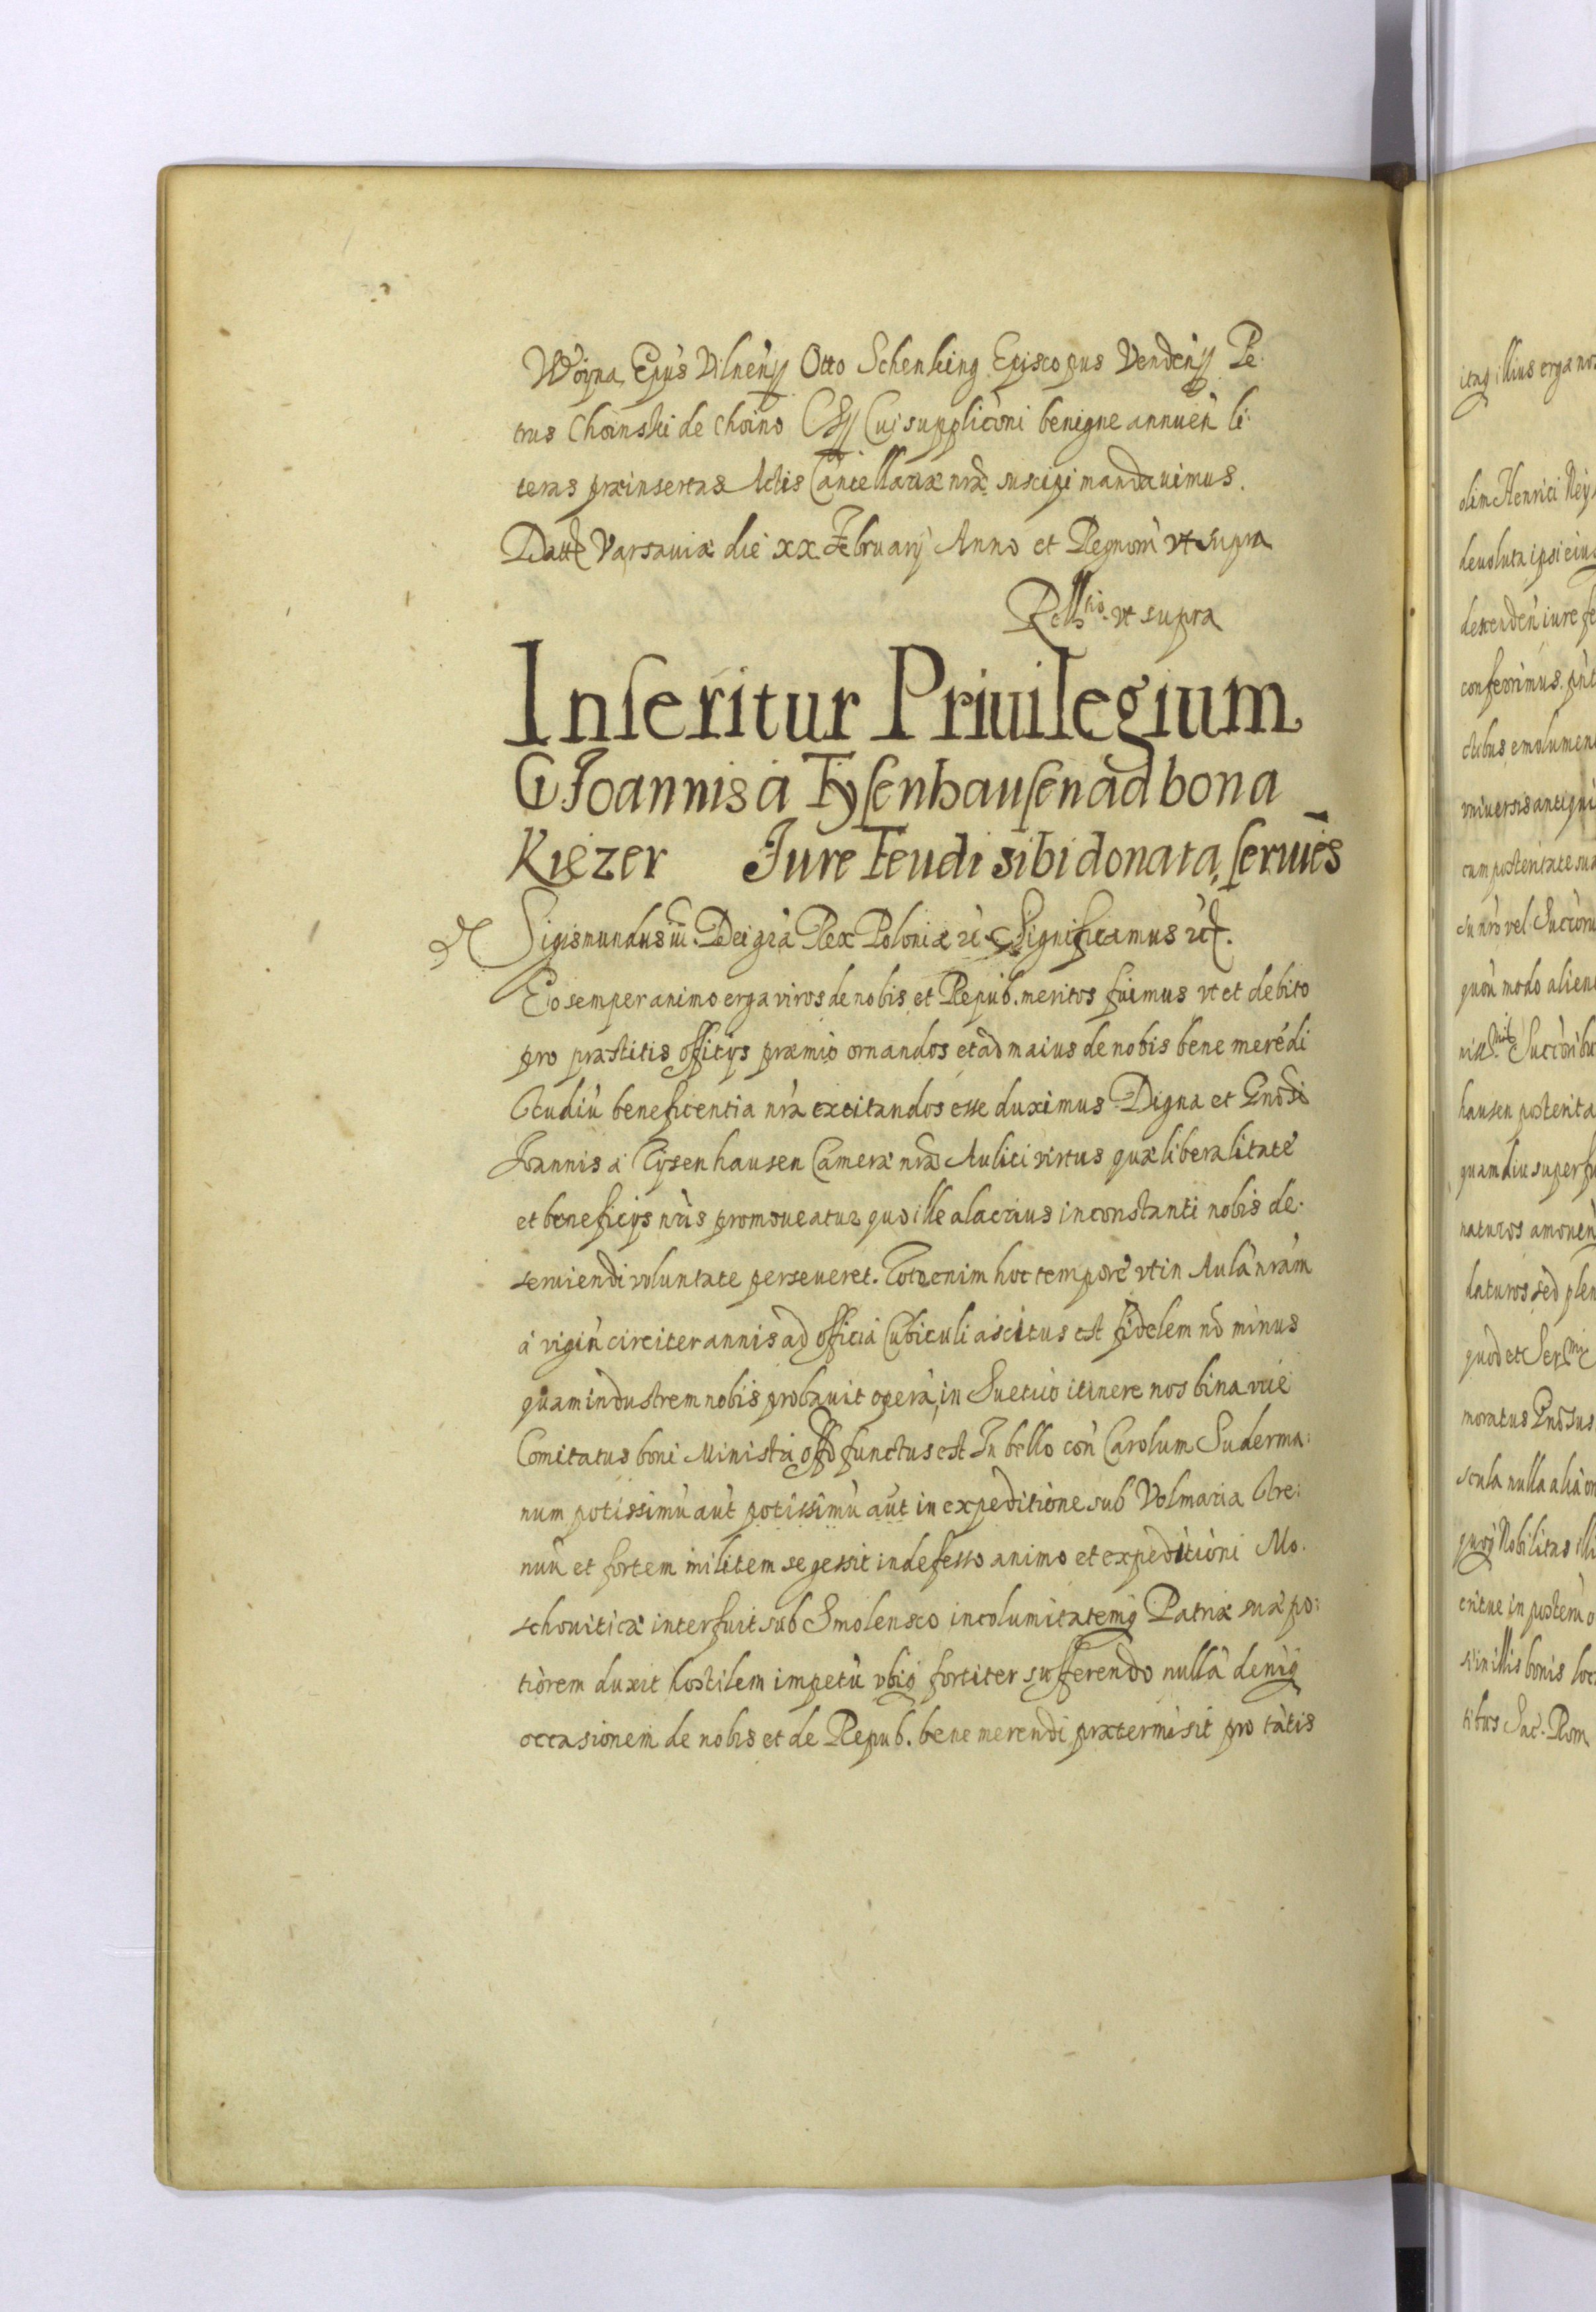 Woyna Epûs Vilneñ Otto Schenking Episcopus Vendeñ Pe:
trus Choinski de Choino Cui supplicôni benigne annueñ li:
teras præinsertas Actis Cancellariæ nrã suscipi mandavimus.
Datt Varsaviæ die xx Februarÿ Anno et Regnorũ vt supra
Rellᵗⁱᵒ vt supra
Inseritur Priuilegium
G Joannis à Tysenhausen ad bona
Kiezer Jure Feudi sibi donata, seruiẽs
Sigismundus iii Dei grã Rex Poloniæ Significamus
Eo semper animo erga viros de nobis et Repub. meritos fuimus vt et debito
pro præstitis officÿs præmio ornandos et ad maius de nobis bene merẽdi
studiũ beneficentia nrã excitandos esse duximus Digna et Gnõsi
Joannis à Tysenhausen Cameræ nrã Aulici virtus quæ liberalitate
et beneficÿs nrĩs promoueatur quo ille alacrius in constanti nobis de:
seruiendi voluntate perseueret. Toto enim hoc tempore vt in Aulã nrãm
à vigiñ circiter annis ad officia Cubiculi ascitus est fidelem nõ minus
quam industrem nobis probavit operã, in Suetiõ itinere nos bina vice
Comitatus boni Ministri offõ functus est In bello coñ Carolum Suderma:
num potissimũ aũt potissimũ aũt in expeditione sub Volmaria Stre:
nuũ et fortem militem se gessit indefesso animo et expeditiõni Mo:
schouiticæ interfuit sub Smolensco incolumitatemq Patriæ suæ po:
tiorem duxit hostilem impetũ vbiq fortiter sufferendo nullã deniq
occasionem de nobis et de Repub. bene merendi prætermisit pro tãtis
itaq illius erga no
olim Henrici Rey
deuoluta ipsi eius
descendeñ iure fe
conferrimus. pñt
ctibus emolumen
vniuersis antiqui
cum posteritate sua
su nrõ vel Succõru
quõu modo aliena
Succõribu
hausen posterita
quamdiu superfu
naturos amoueñ
daturos sed plen
quod et Ser
moratus Gnõsus
scula nulla alia
quoq Nobilitas illi
critue in posterũ o
si in illis bonis loc
tibus Sac. Rom